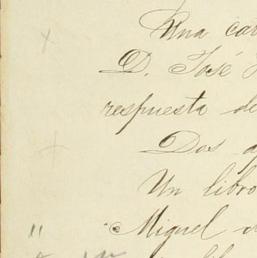 Una car
D. José
respuesta de
Dos
Un libro
" Miguel